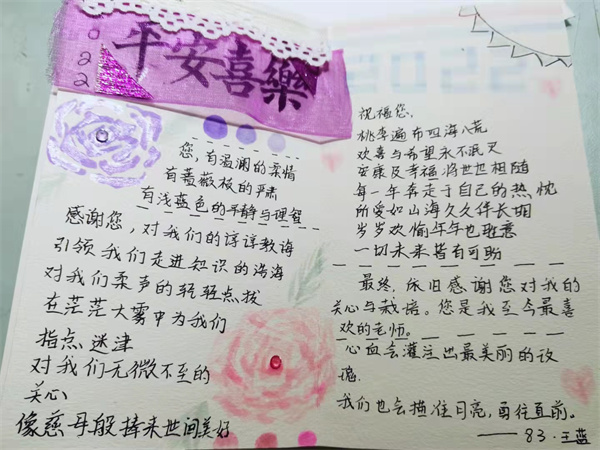 022
平安喜樂
您,有温澜的柔情
有蔷薇板的严肃
有浅蓝色的平静与理智
感谢您,对我们的谆谆教诲
引领我们走进知识的浩海
对我们柔声的轻轻点拔
在茫茫大雾中为我们
指点迷津
对我们无微不至的
关心
像慈母般捧来世间美好
祝福您,
桃李遍布四海八荒
欢喜与希望永不泯灭
安康及幸福将世世相随
每一年奔走于自己的热忱
所爱如山海久久伴长拥
岁岁欢愉年年也胜意
一切未来皆有可盼
最终,依旧感谢您对我的
关心与栽培。您是我至今最喜
欢的老师。
心血会灌注出最美丽的玫
瑰.
我们也会描准月亮,勇往直前。
——83.王蓝